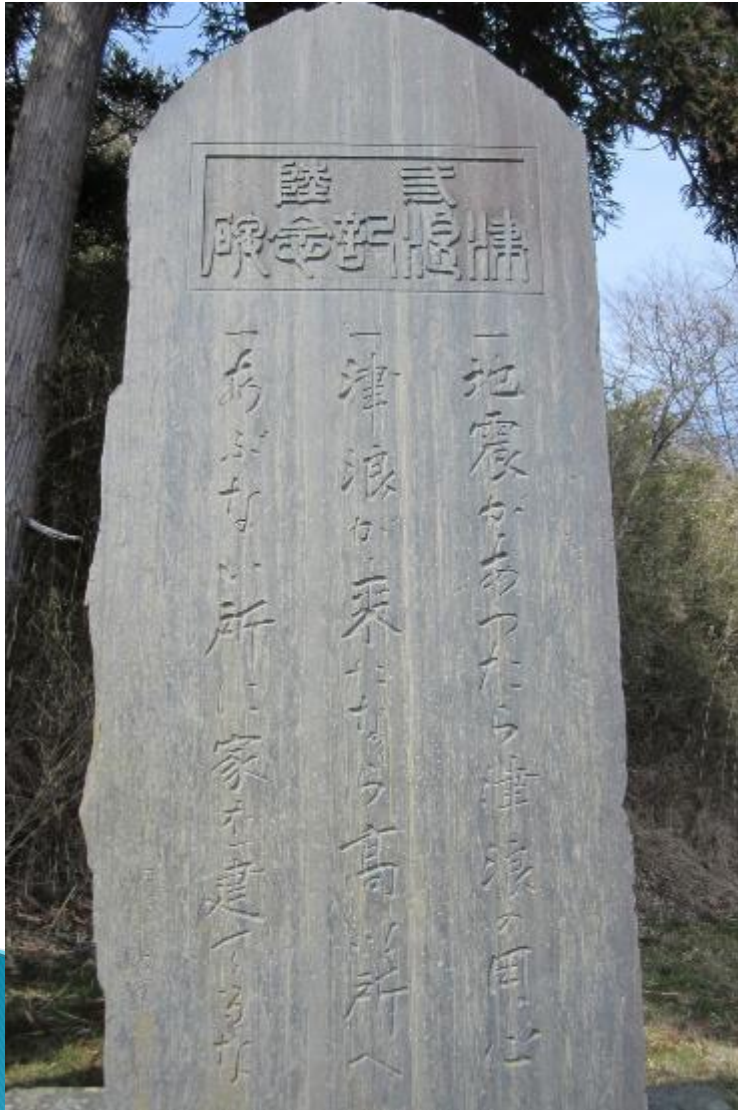 弎陸
津浪記念碑
一地震があつたら津浪の用心
一津浪が来たなら高い所へ
一あぶない所に家を建てるな